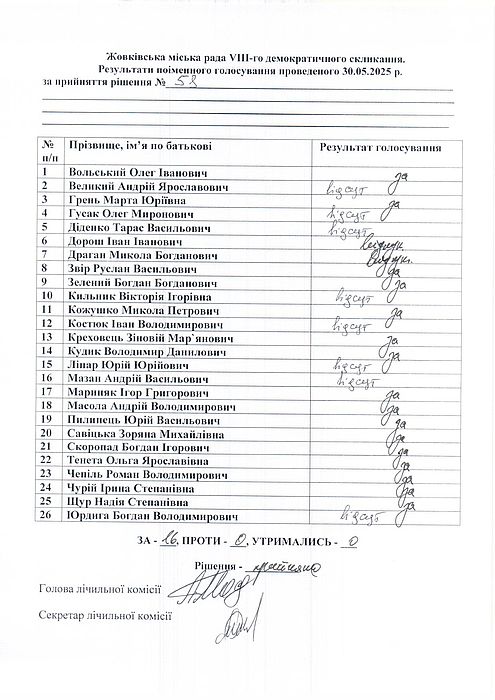 Жовківська міська рада VІІІ-го демократичного скликання.
Результати поіменного голосування проведеного 30.05.2025 р.
за прийняття рішення №
№ п/п Прізвище, ім’я по батькові Результат голосування
1 Вольський Олег Іванович за
2 Великий Андрій Ярославович відсут
3 Грень Марта Юріївна за
4 Гусак Олег Миронович відсут
5 Діденко Тарас Васильович відсут
6 Дорош Іван Іванович
7 Драган Микола Богданович
8 Звір Руслан Васильович за
9 Зелений Богдан Богданович за
10 Кильник Вікторія Ігорівна відсут
11 Кожушко Микола Петрович за
12 Костюк Іван Володимирович відсут
13 Креховець Зіновій Мар`янович за
14 Кудик Володимир Данилович за
15 Лінар Юрій Юрійович відсут
16 Мазан Андрій Васильович відсут
17 Мариняк Ігор Григорович за
18 Масола Андрій Володимирович за
19 Пилипець Юрій Васильович за
20 Савіцька Зоряна Михайлівна за
21 Скоропад Богдан Ігорович за
22 Тепета Ольга Ярославівна за
23 Чепіль Роман Володимирович за
24 Чурій Ірина Степанівна за
25 Щур Надія Степанівна за
26 Юрдига Богдан Володимирович відсут
ЗА - 16, ПРОТИ - 0, УТРИМАЛИСЬ - 0
Рішення - прийняно
Голова лічильної комісії
Секретар лічильної комісії